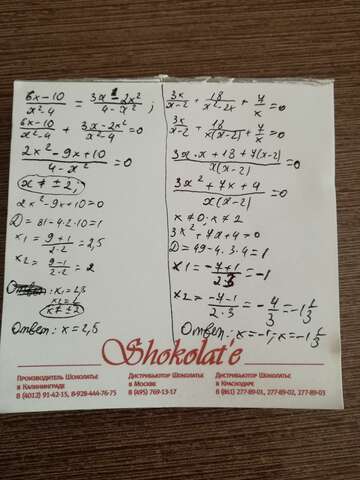 (6x-10)/(x²-4) = (3x-2x²)/(4-x²);
(6x-10)/(x²-4) + (3x-2x²)/(x²-4) = 0
(2x²-9x+10)/(4-x²) = 0
x ≠ ±2;
2x²-9x+10=0
D=81-4·2·10=1
x₁ = (9+1)/(2·2) = 2,5
x₂ = (9-1)/(2·2) = 2
x₁=2,5
x₂=2
x≠±2
Ответ: x=2,5
3x/(x-2) + 18/(x²-2x) + 7/x = 0
3x/(x-2) + 18/(x(x-2)) + 7/x = 0
(3x·x+18+7(x-2))/(x(x-2)) = 0
(3x²+7x+4)/(x(x-2)) = 0
x≠0; x≠2
3x²+7x+4=0
D=49-4·3·4=1
x1 = (-7+1)/(2·3) = -1
x2 = (-7-1)/(2·3) = -4/3 = -1 1/3
Ответ: x=-1; x=-1 1/3
Shokolat'e
Производитель Шоколатье
в Калининграде
8 (4012) 91-42-15, 8-928-444-76-75
Дистрибьютор Шоколатье
в Москве
8 (495) 769-13-17
Дистрибьютор Шоколатье
в Краснодаре
8 (861) 277-89-01, 277-89-02, 277-89-03